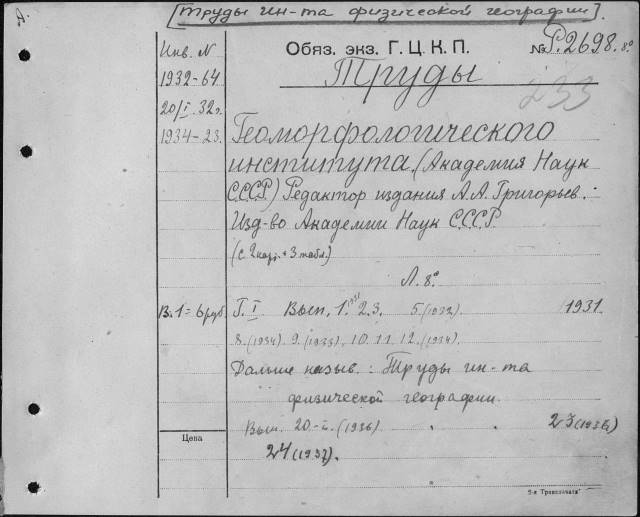 [Труды ин-та физической географии].
Инв. N
Обяз. экз. Г. Ц. К. П. № P.2698. 8°
1932-64
Труды
20/I 32г.
233
1934-23.
Геоморфологического
института. (Академия Наук
СССР.) Редактор издания А. А. Григорьев.:
Изд-во Академии Наук СССР.
(с 2 кар. + 3 табл.)
Л. 8°
В. 1 = 6 руб
Т. I Вып. 1. 1931 2. 3. 5 (1932) 1931
8. (1934). 9. (1933). 10. 11. 12. (1934).
Дальше назыв.: Труды ин-та
физической географии.
Вып. 20-й. (1936) 23 (1936)
Цена
24 (1937).